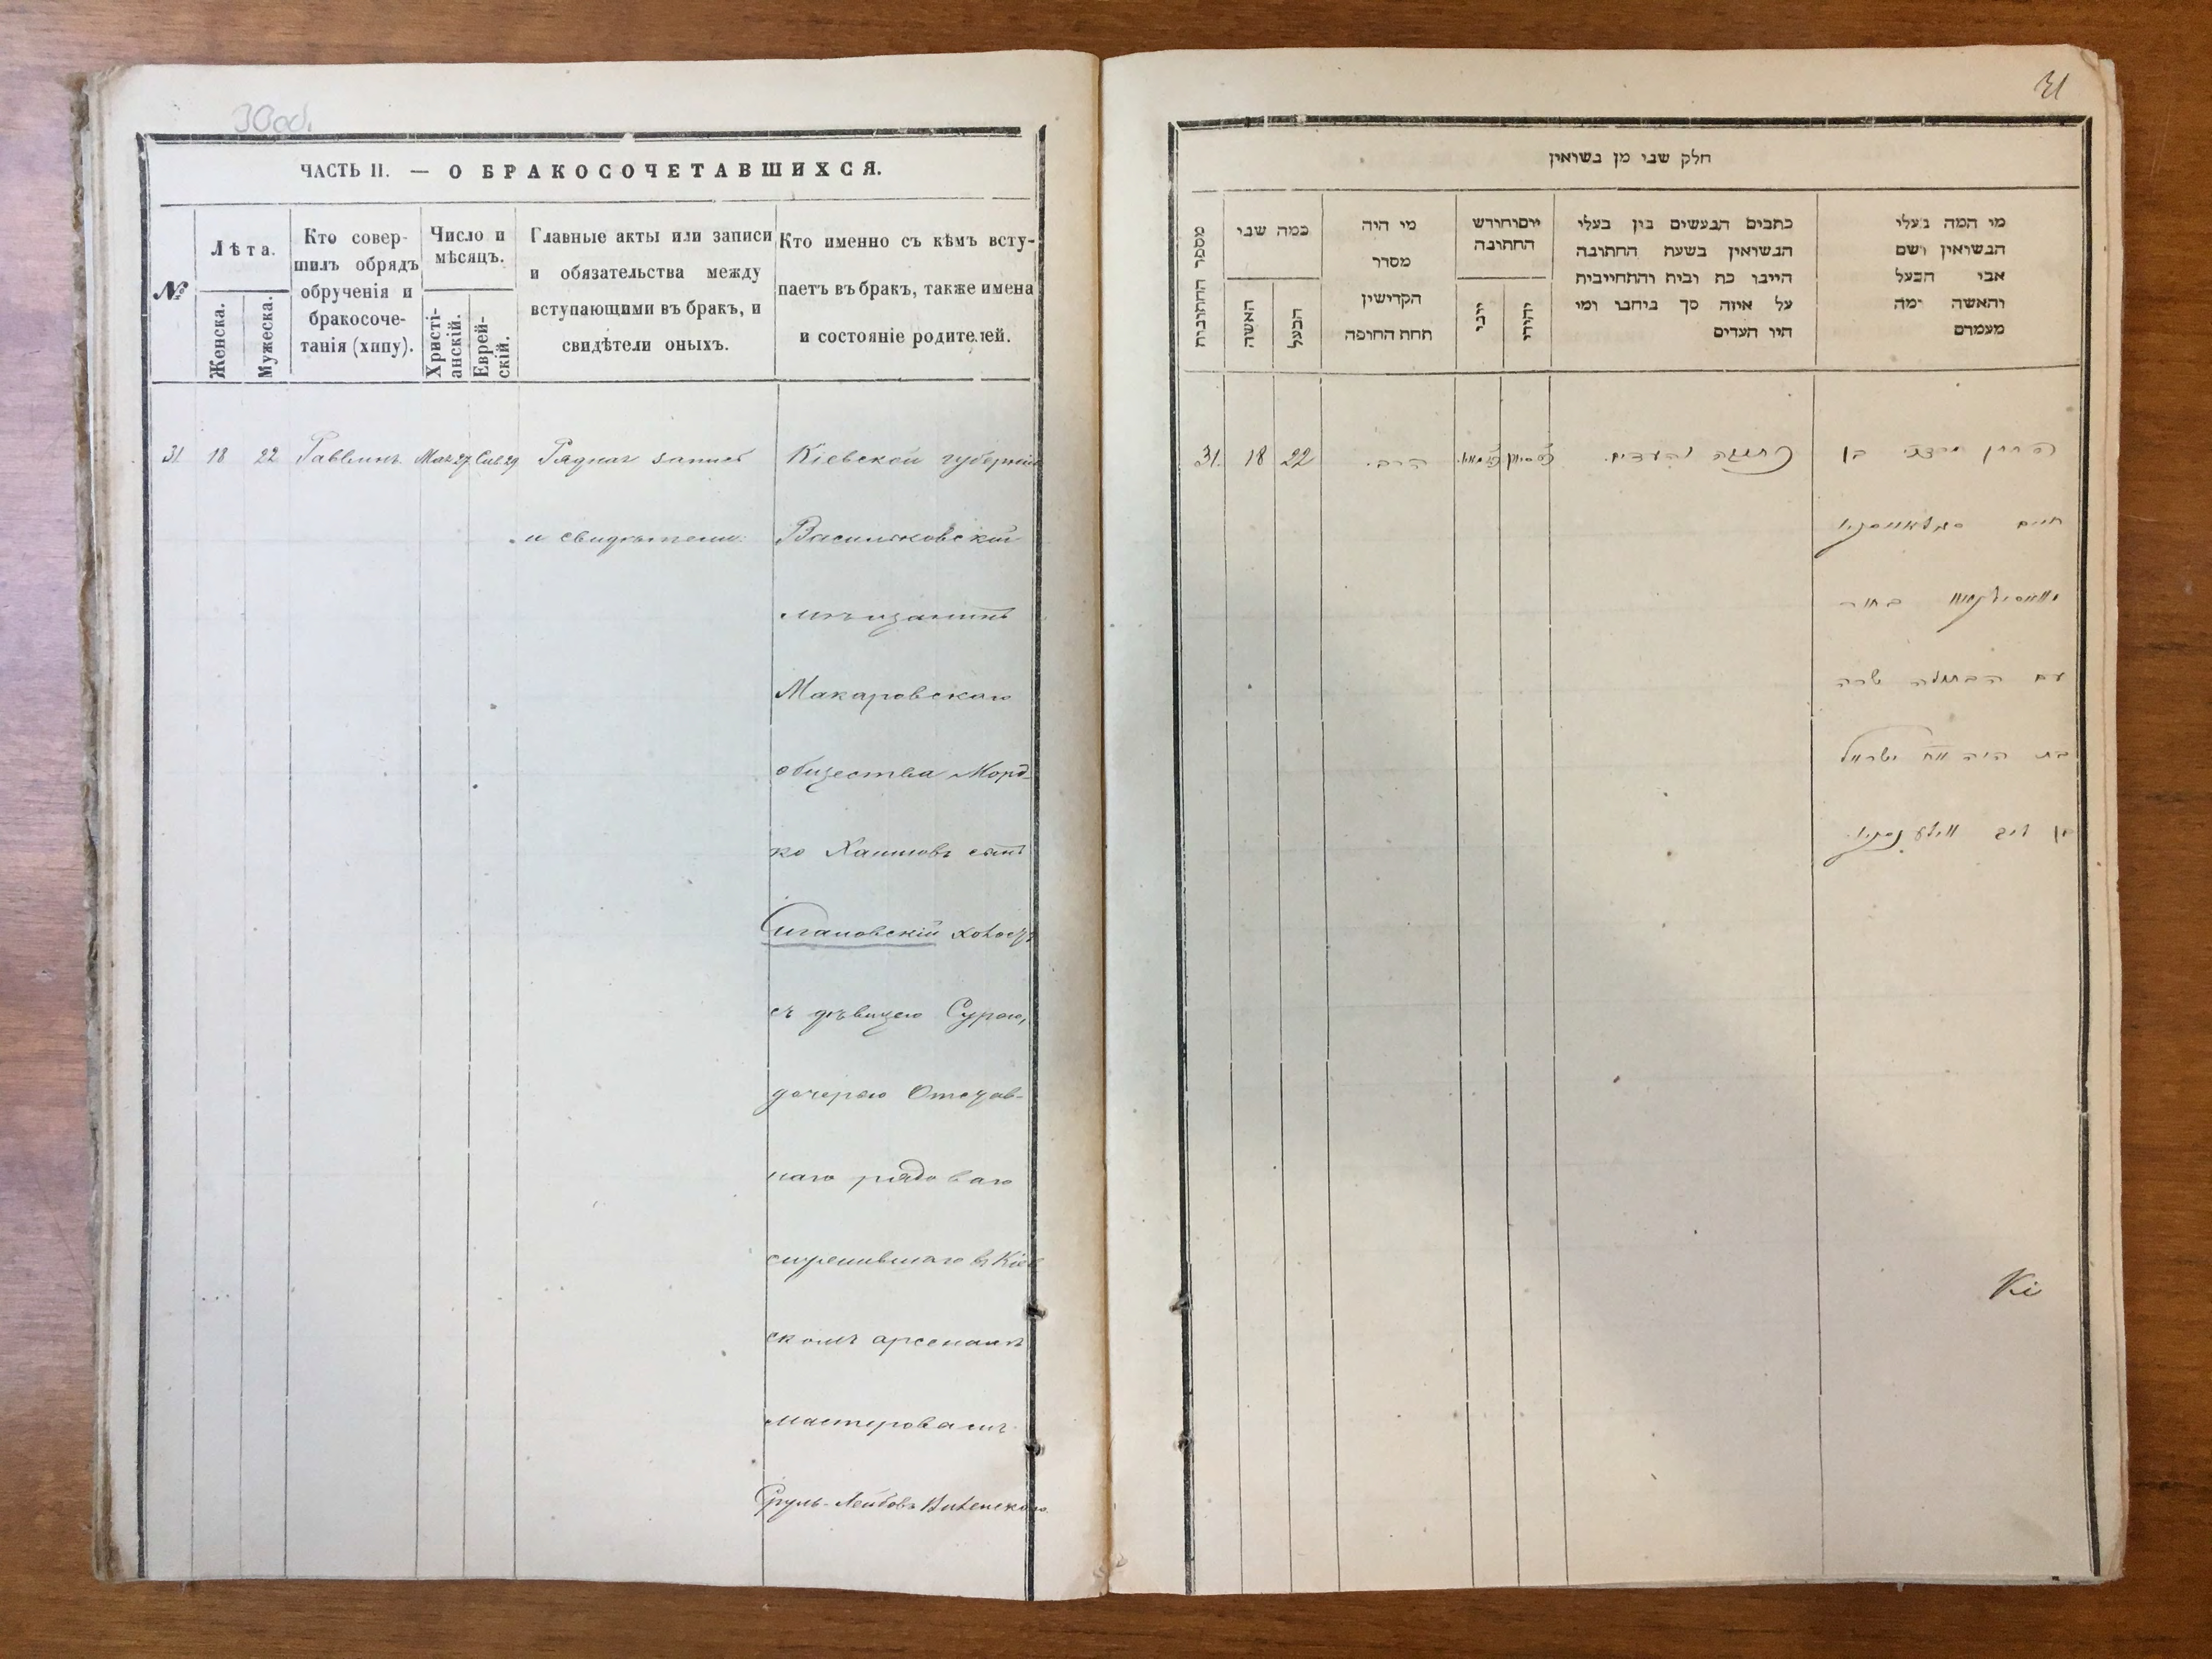 30 об.
ЧАСТЬ II. — О БРАКОСОЧЕТАВШИХСЯ.
№
Лѣта.
Женска.
Мужеска.
Кто совер-
шилъ обрядъ
обрученія и
бракосоче-
танія (хипу).
Число и
мѣсяцъ.
Христі-
анскій.
Еврей-
скій.
Главные акты или записи
и обязательства между
вступающими въ бракъ, и
свидѣтели оныхъ.
Кто именно съ кѣмъ всту-
паетъ въ бракъ, также имена
и состояніе родителей.
31 18 22 Раввинъ. 27 29 Рядная запись Кіевской губерніи
и свидѣтели. Васильковскій
мѣщанинъ
Макаровскаго
общества Морд-
ко Хаимовъ сынъ
холостъ
съ дѣвицею Сурою,
дочерью Отстав-
наго рядоваго
служившаго в Кіев
скомъ арсеналѣ
мастеровымъ
Сруль-Лейбовъ Виленскаго.
31
חלק שני מן נשואין
מספר החתונות
כמה שני
האשה
הבעל
מי היה
מסדר
הקדישין
תחת החופה
יום וחודש
החתונה
יוני
יהודי
כתבים הנעשים בין בעלי
הנשואין בשעת החתונה
הייבו כח ובית והתחייבית
על איזה סך ביחבו ומי
היו העדים
מי המה בעלי
הנשואין ושם
אבי הבעל
והאשה ומה
מעמדם
31. 18 22 הרב. כתובה והעדים. החתן מרדכי בן
חיים
בחור
עם הבתולה שרה
בת ישראל
בן ליב
Кі